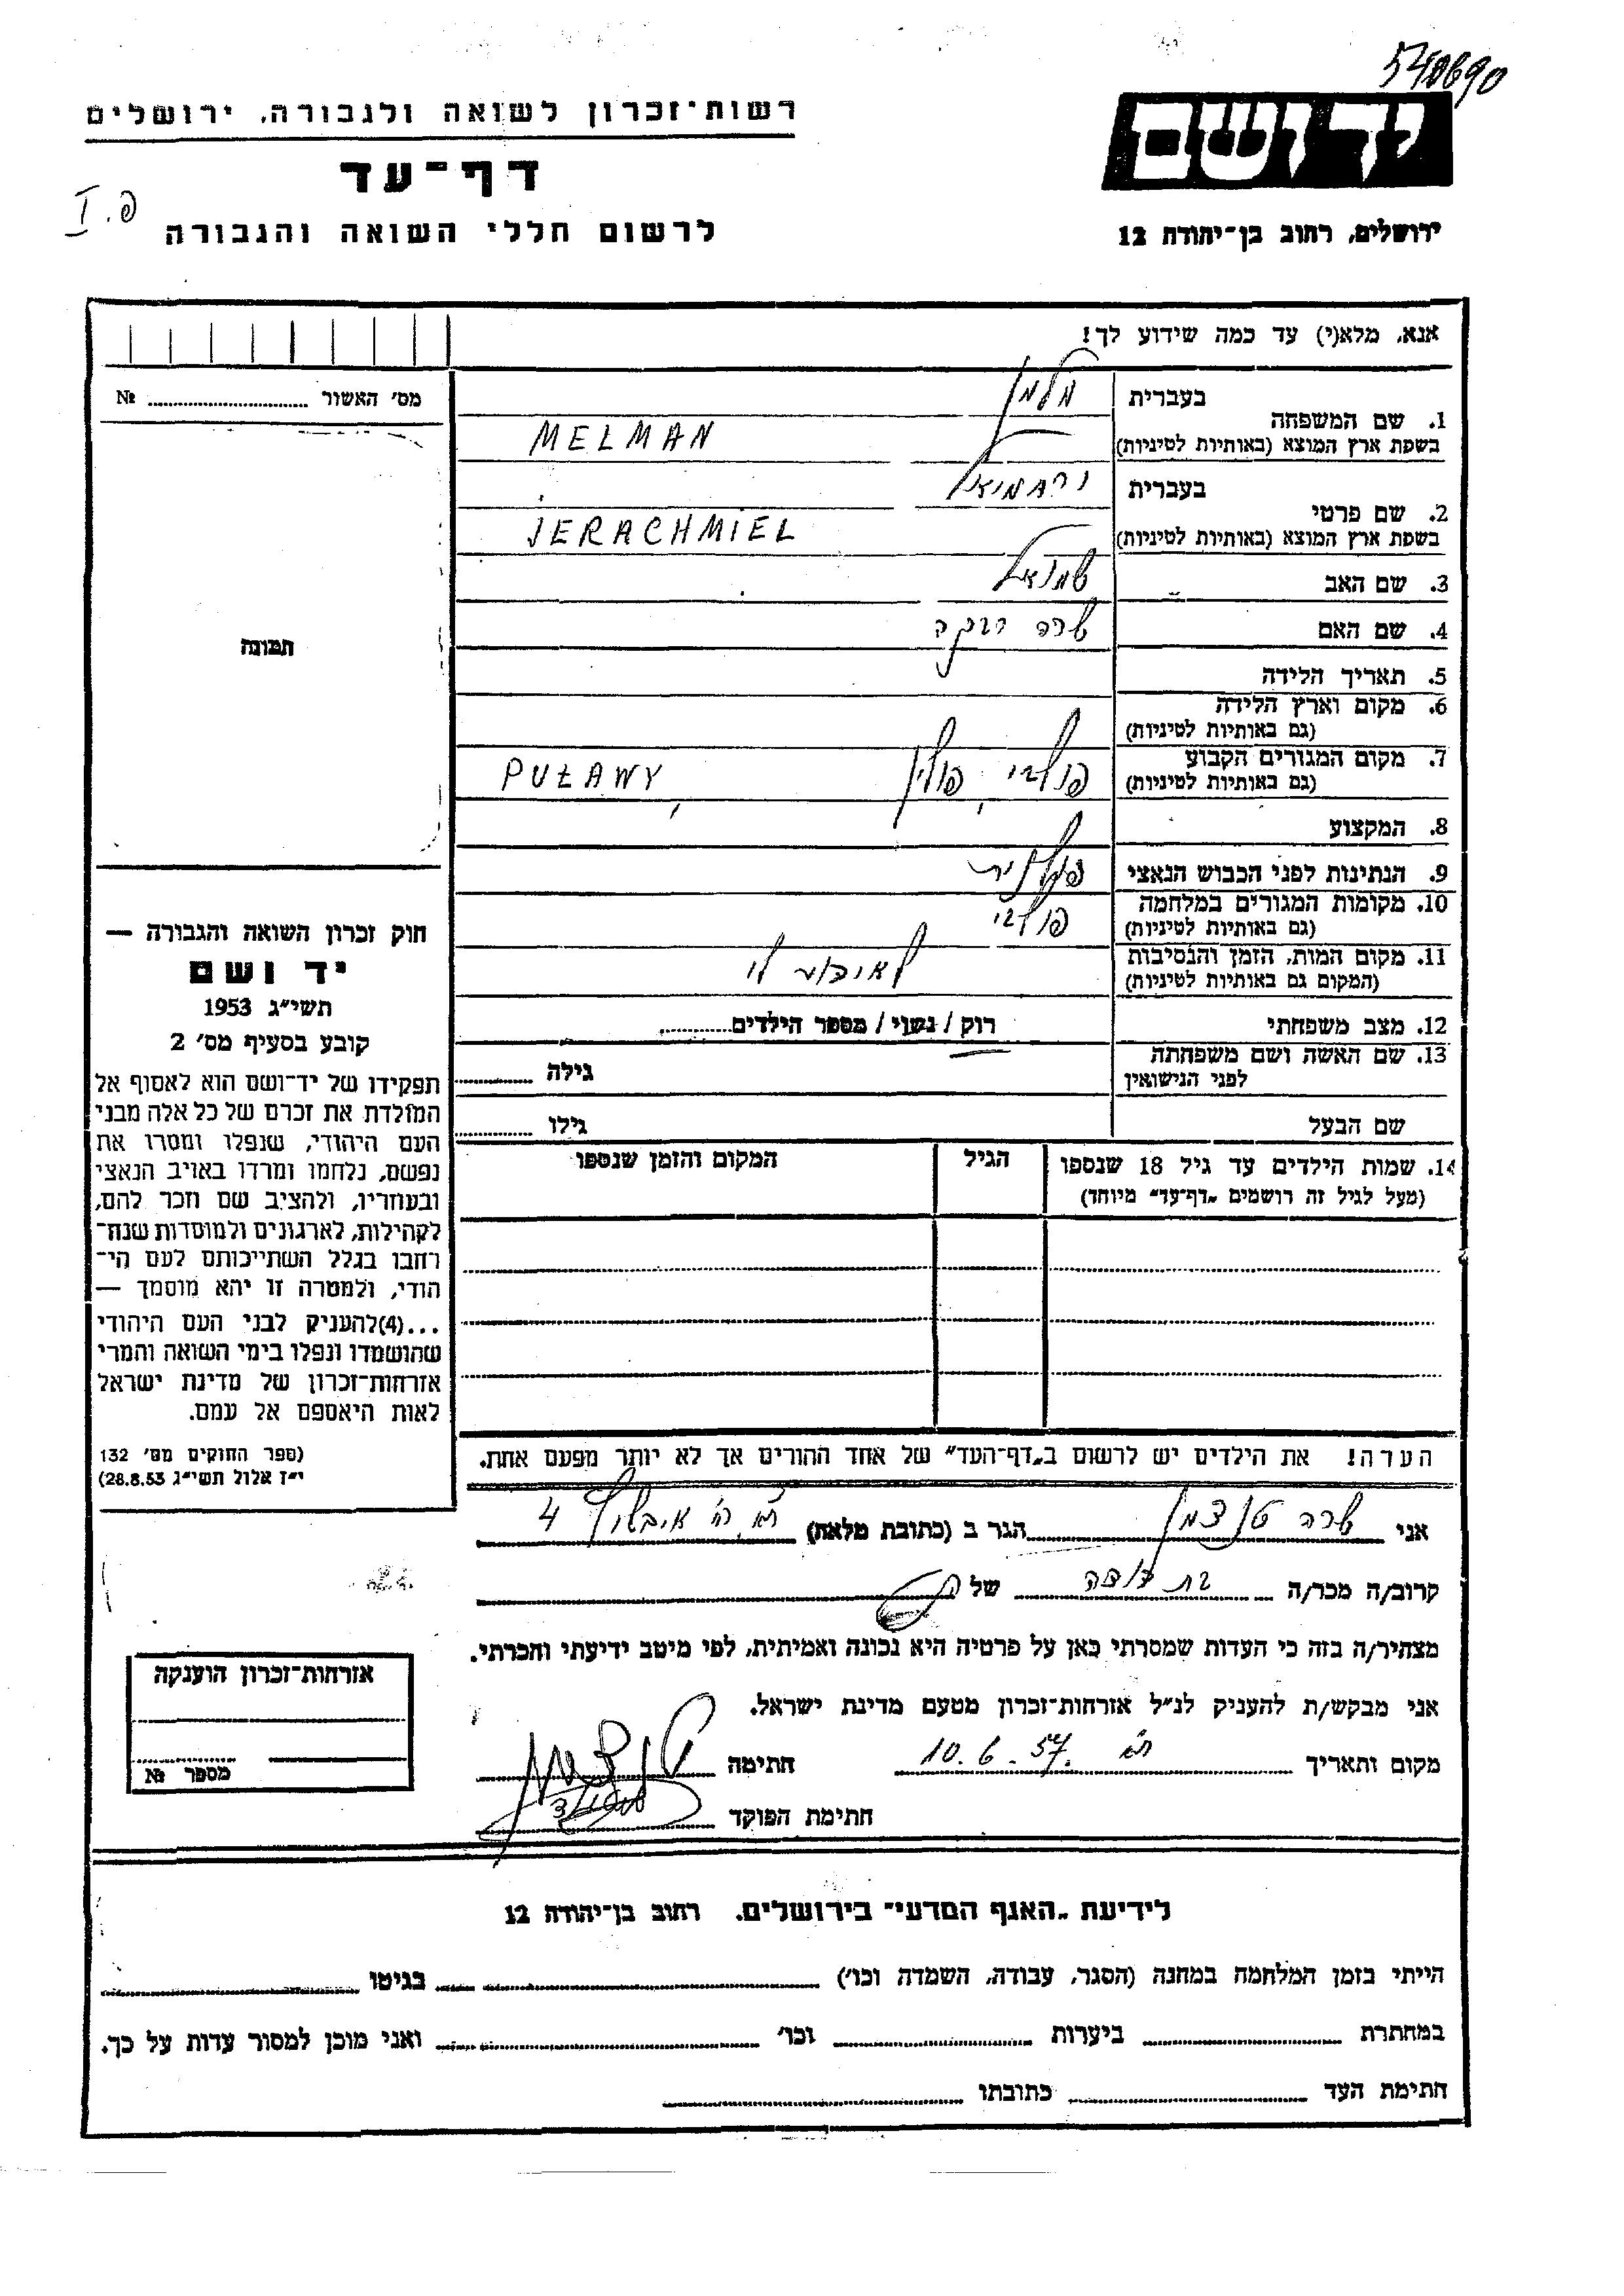 540690
רשות־זכרון לשואה ולגבורה, ירושלים
יד ושם
דף־עד
פ. I
לרשום חללי השואה והגבורה
ירושלים, רחוב בן־יהודה 12
אנא, מלא(י) עד כמה שידוע לך!
מס׳ האשור № 
1. שם המשפחה
בעברית מלמן
בשפת ארץ המוצא (באותיות לטיניות) MELMAN
2. שם פרטי
בעברית ירחמיאל
בשפת ארץ המוצא (באותיות לטיניות) JERACHMIEL
3. שם האב שמואל
4. שם האם שרה רבקה
5. תאריך הלידה
6. מקום וארץ הלידה
(גם באותיות לטיניות)
7. מקום המגורים הקבוע פולבי, פולין PUŁAWY,
(גם באותיות לטיניות)
8. המקצוע
9. הנתינות לפני הכבוש הנאצי פולנית
10. מקומות המגורים במלחמה פולבי
(גם באותיות לטיניות)
11. מקום המות, הזמן והנסיבות
(המקום גם באותיות לטיניות)
12. מצב משפחתי רוק / נשוי / מספר הילדים
13. שם האשה ושם משפחתה
לפני הנישואין גילה
שם הבעל גילו
14. שמות הילדים עד גיל 18 שנספו הגיל המקום והזמן שנספו
(מעל לגיל זה רושמים „דף־עד״ מיוחד)
תמונה
חוק זכרון השואה והגבורה —
יד ושם
תשי״ג 1953
קובע בסעיף מס׳ 2
תפקידו של יד־ושם הוא לאסוף אל
המולדת את זכרם של כל אלה מבני
העם היהודי, שנפלו ומסרו את
נפשם, נלחמו ומרדו באויב הנאצי
ובעוזריו, ולהציב שם וזכר להם,
לקהילות, לארגונים ולמוסדות שנח־
רבו בגלל השתייכותם לעם הי־
הודי, ולמטרה זו יהא מוסמך —
...(4) להעניק לבני העם היהודי
שהושמדו ונפלו בימי השואה והמרי
אזרחות־זכרון של מדינת ישראל
לאות היאספם אל עמם.
(ספר החוקים מס׳ 132
י״ז אלול תשי״ג 28.8.53)
הערה! את הילדים יש לרשום ב„דף־העד״ של אחד ההורים אך לא יותר מפעם אחת.
אני שרה הגר ב (כתובת מלאה) 4
קרוב/ה מכר/ה בת דודה של
מצהיר/ה בזה כי העדות שמסרתי כאן על פרטיה היא נכונה ואמיתית, לפי מיטב ידיעתי והכרתי.
אני מבקש/ת להעניק לנ״ל אזרחות־זכרון מטעם מדינת ישראל.
מקום ותאריך ת״א 10.6.57. חתימה
חתימת הפוקד
אזרחות־זכרון הוענקה
מספר №
לידיעת „האגף המדעי״ בירושלים, רחוב בן־יהודה 12
הייתי בזמן המלחמה במחנה (הסגר, עבודה, השמדה וכו׳) בגיטו
במחתרת ביערות וכו׳ ואני מוכן למסור עדות על כך.
חתימת העד כתובתו